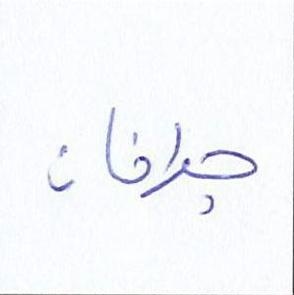 جرافان